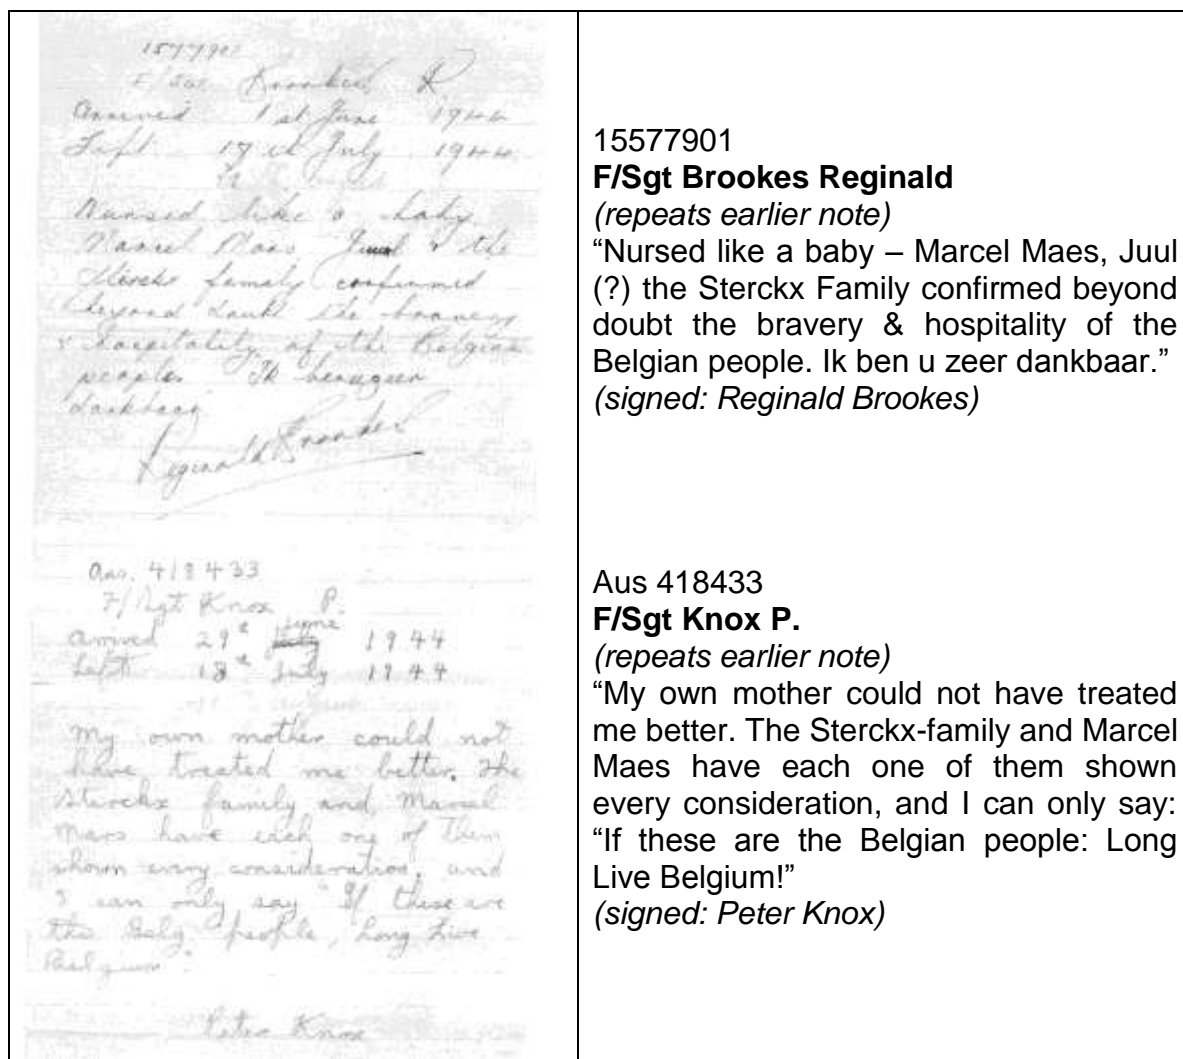 1577901
F/Sgt Brookes R
Arrived 1st June 1944
Left 17th July 1944
Nursed like a baby
Marcel Maes, Juul & the
Sterckx family confirmed
beyond doubt the bravery
& hospitality of the Belgian
people. Ik ben u zeer
dankbaar
Reginald Brookes
Aus. 418433
F/Sgt Knox P.
arrived 29th June 1944
Left 18th July 1944
My own mother could not
have treated me better. The
Sterckx family and Marcel
Maes have each one of them
shown every consideration, and
I can only say "If these are
the Belg people, Long Live
Belgium"
Peter Knox
15577901
F/Sgt Brookes Reginald
(repeats earlier note)
“Nursed like a baby – Marcel Maes, Juul
(?) the Sterckx Family confirmed beyond
doubt the bravery & hospitality of the
Belgian people. Ik ben u zeer dankbaar.”
(signed: Reginald Brookes)
Aus 418433
F/Sgt Knox P.
(repeats earlier note)
“My own mother could not have treated
me better. The Sterckx-family and Marcel
Maes have each one of them shown
every consideration, and I can only say:
“If these are the Belgian people: Long
Live Belgium!”
(signed: Peter Knox)